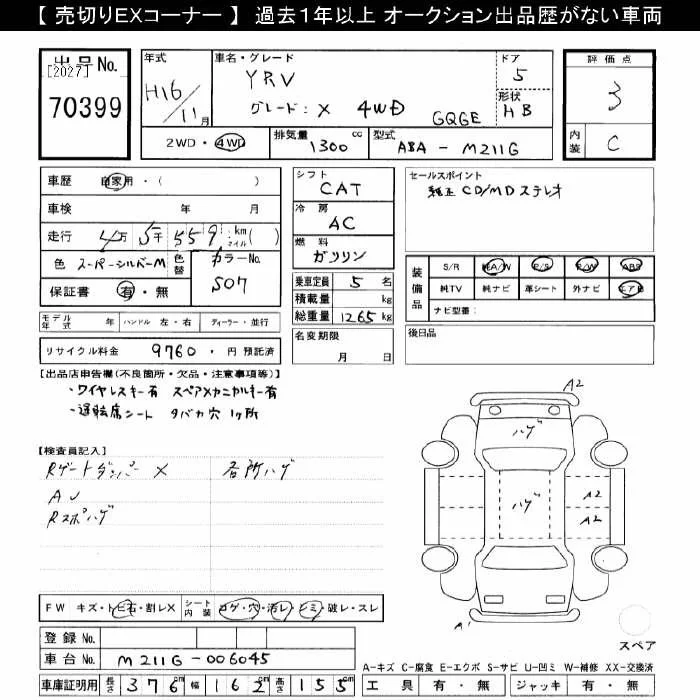 【 売切りEXコーナー 】 過去1年以上 オークション出品歴がない車両
出品No.
[2027]
70399
年式
H16/11月
車名・グレード
YRV
グレード:X 4WD
GQGE
ドア
5
形状
HB
評価点
3
内装
C
2WD・4WD
排気量
1300 cc
型式
ABA - M211G
車歴 自家用・( )
車検 年 月
走行 4万 5千 559 km マイル ( )
色 スーパーシルバーM 色替 カラーNo. S07
保証書 有・無
シフト
CAT
冷房
AC
燃料
ガソリン
乗車定員 5 名
積載量 kg
総重量 1265 kg
セールスポイント
純正 CD/MD ステレオ
装備品
S/R 純A/W P/S P/W ABS
純TV 純ナビ 革シート 外ナビ エアB
ナビ型番:
モデル年式 年 ハンドル 左・右 ディーラー・並行
リサイクル料金 9760 円 預託済
名変期限
月 日
後日品
【出品店申告欄(不良箇所・欠品・注意事項等)】
・ワイヤレスキー有 スペアメカニカルキー有
・運転席シート タバコ穴 1ヶ所
【検査員記入】
Rゲートダンパー X 各所ハゲ
Rスポハゲ
A2
ハゲ
ハゲ
A2
A2
A1
スペア
FW キズ・トビ石・割レX シート内装 コゲ・穴・汚レ・シミ・破レ・スレ
登録 No.
車台 No. M211G - 006045
車庫証明用 長さ 376cm 幅 162cm 高さ 155cm
A-キズ C-腐食 E-エクボ S-サビ U-凹ミ W-補修 XX-交換済
工具 有・無 ジャッキ 有・無